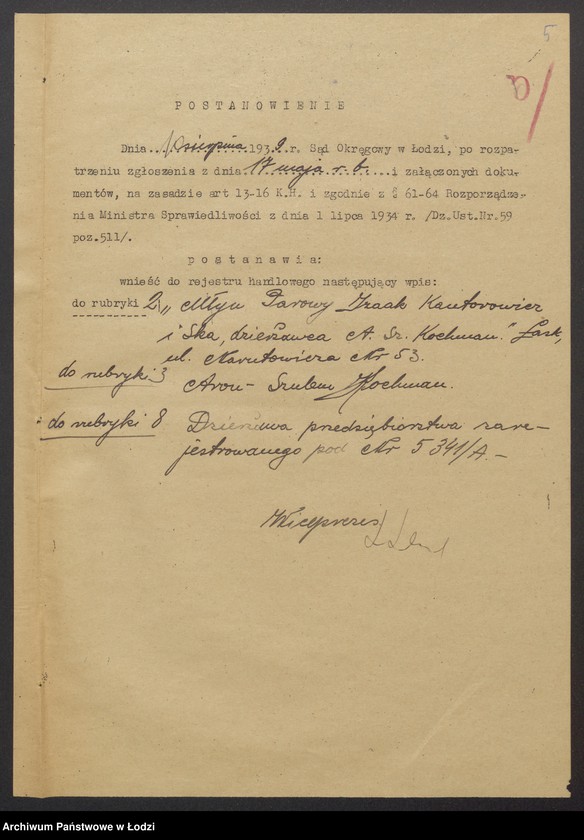 5
a
POSTANOWIENIE
Dnia...1 sierpnia 1939.r. Sąd Okręgowy w Łodzi, po rozpa-
trzeniu zgłoszenia z dnia 17 maja r. b. i załączonych doku-
mentów, na zasadzie art 13-16 K.H. i zgodnie z § 61-64 Rozporządze-
nia Ministra Sprawiedliwości z dnia 1 lipca 1934 r. /Dz.Ust.Nr.59
poz.511/.
postanawia:
wnieść do rejestru handlowego następujący wpis:
do rubryki 2 "Młyn Parowy Izaak Kantorowicz
i Ska, dzierżawca A. Sz. Kochman." Łask,
ul. Narutowicza Nr 53.
do rubryki 3 Aron-Szulem Kochman.
do rubryki 8 Dzierżawa przedsiębiorstwa zare-
jestrowanego pod Nr 5341/A.-
Wiceprezes
Archiwum Państwowe w Łodzi